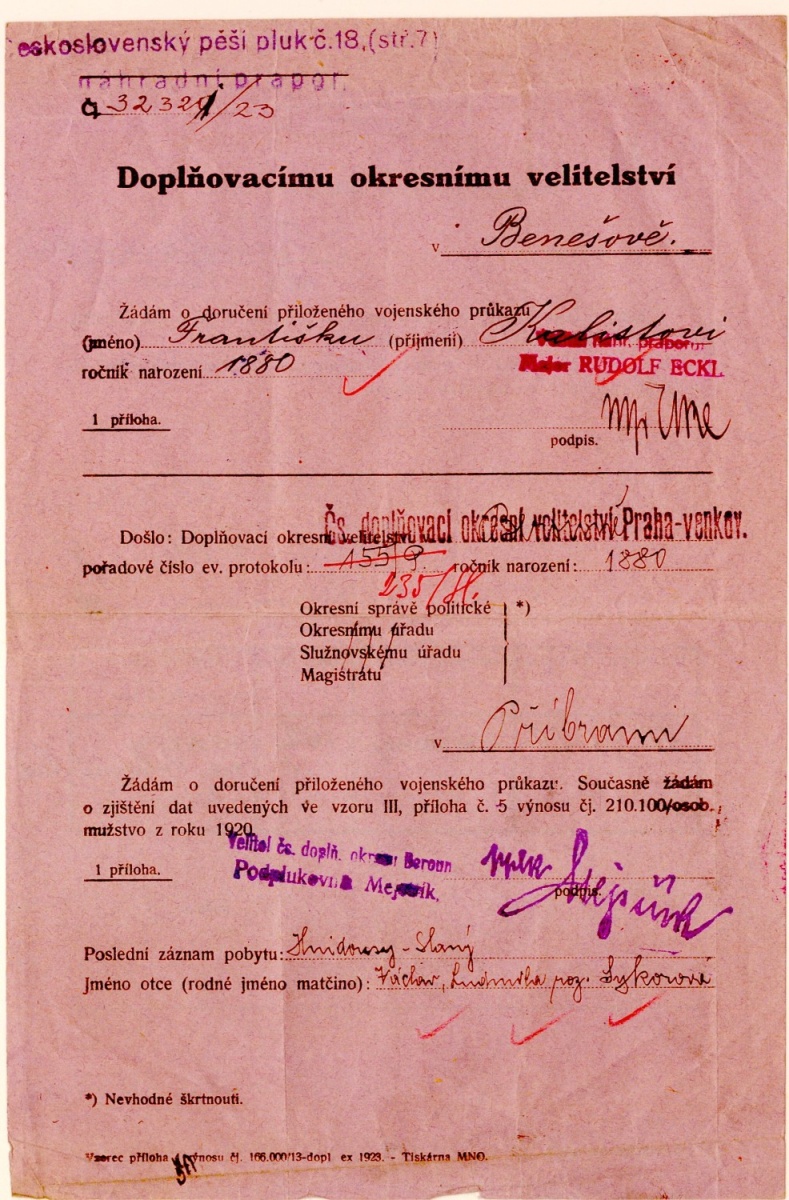 eskoslovenský pěší pluk č.18, (stř.7)
náhradní prapor.
Č. /23
Doplňovacímu okresnímu velitelství
v Benešově.
Žádám o doručení přiloženého vojenského průkazu
(jméno) Františku (příjmení) Kalistovi
prapor
Major RUDOLF ECKL.
ročník narození 1880
1 příloha.
podpis.
Čs. doplňovací okresní velitelství Praha-venkov.
Došlo: Doplňovací okresní velitelství
pořadové číslo ev. protokolu: 155/9 ročník narození: 1880
235/
Okresní správě politické *)
Okresnímu úřadu
Služnovskému úřadu
Magistrátu
v Příbrami
Žádám o doručení přiloženého vojenského průkazu. Současně žádám
o zjištění dat uvedených ve vzoru III, příloha č. 5 výnosu čj. 210.100/osob.
mužstvo z roku 1920.
Velitel čs. doplň. okresu Beroun
1 příloha.
Podplukovník
podpis.
Poslední záznam pobytu: Hnidousy - Slaný
Jméno otce (rodné jméno matčino): Václav, Ludmila roz. Sýkorová
*) Nevhodné škrtnouti.
Vzorec příloha výnosu čj. 166.000/13-dopl ex 1923. - Tiskárna MNO.